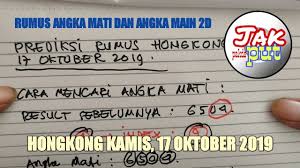 RUMUS ANGKA MATI DAN ANGKA MAIN 2D
PREDIKSI RUMUS HONGKONG
17 OKTOBER 2019.
JAK
put
CARA MENCARI ANGKA MATI :
RESULT SEBELUMNYA : 6504
INDEX
HONGKONG KAMIS, 17 OKTOBER 2019
Angka Mati :